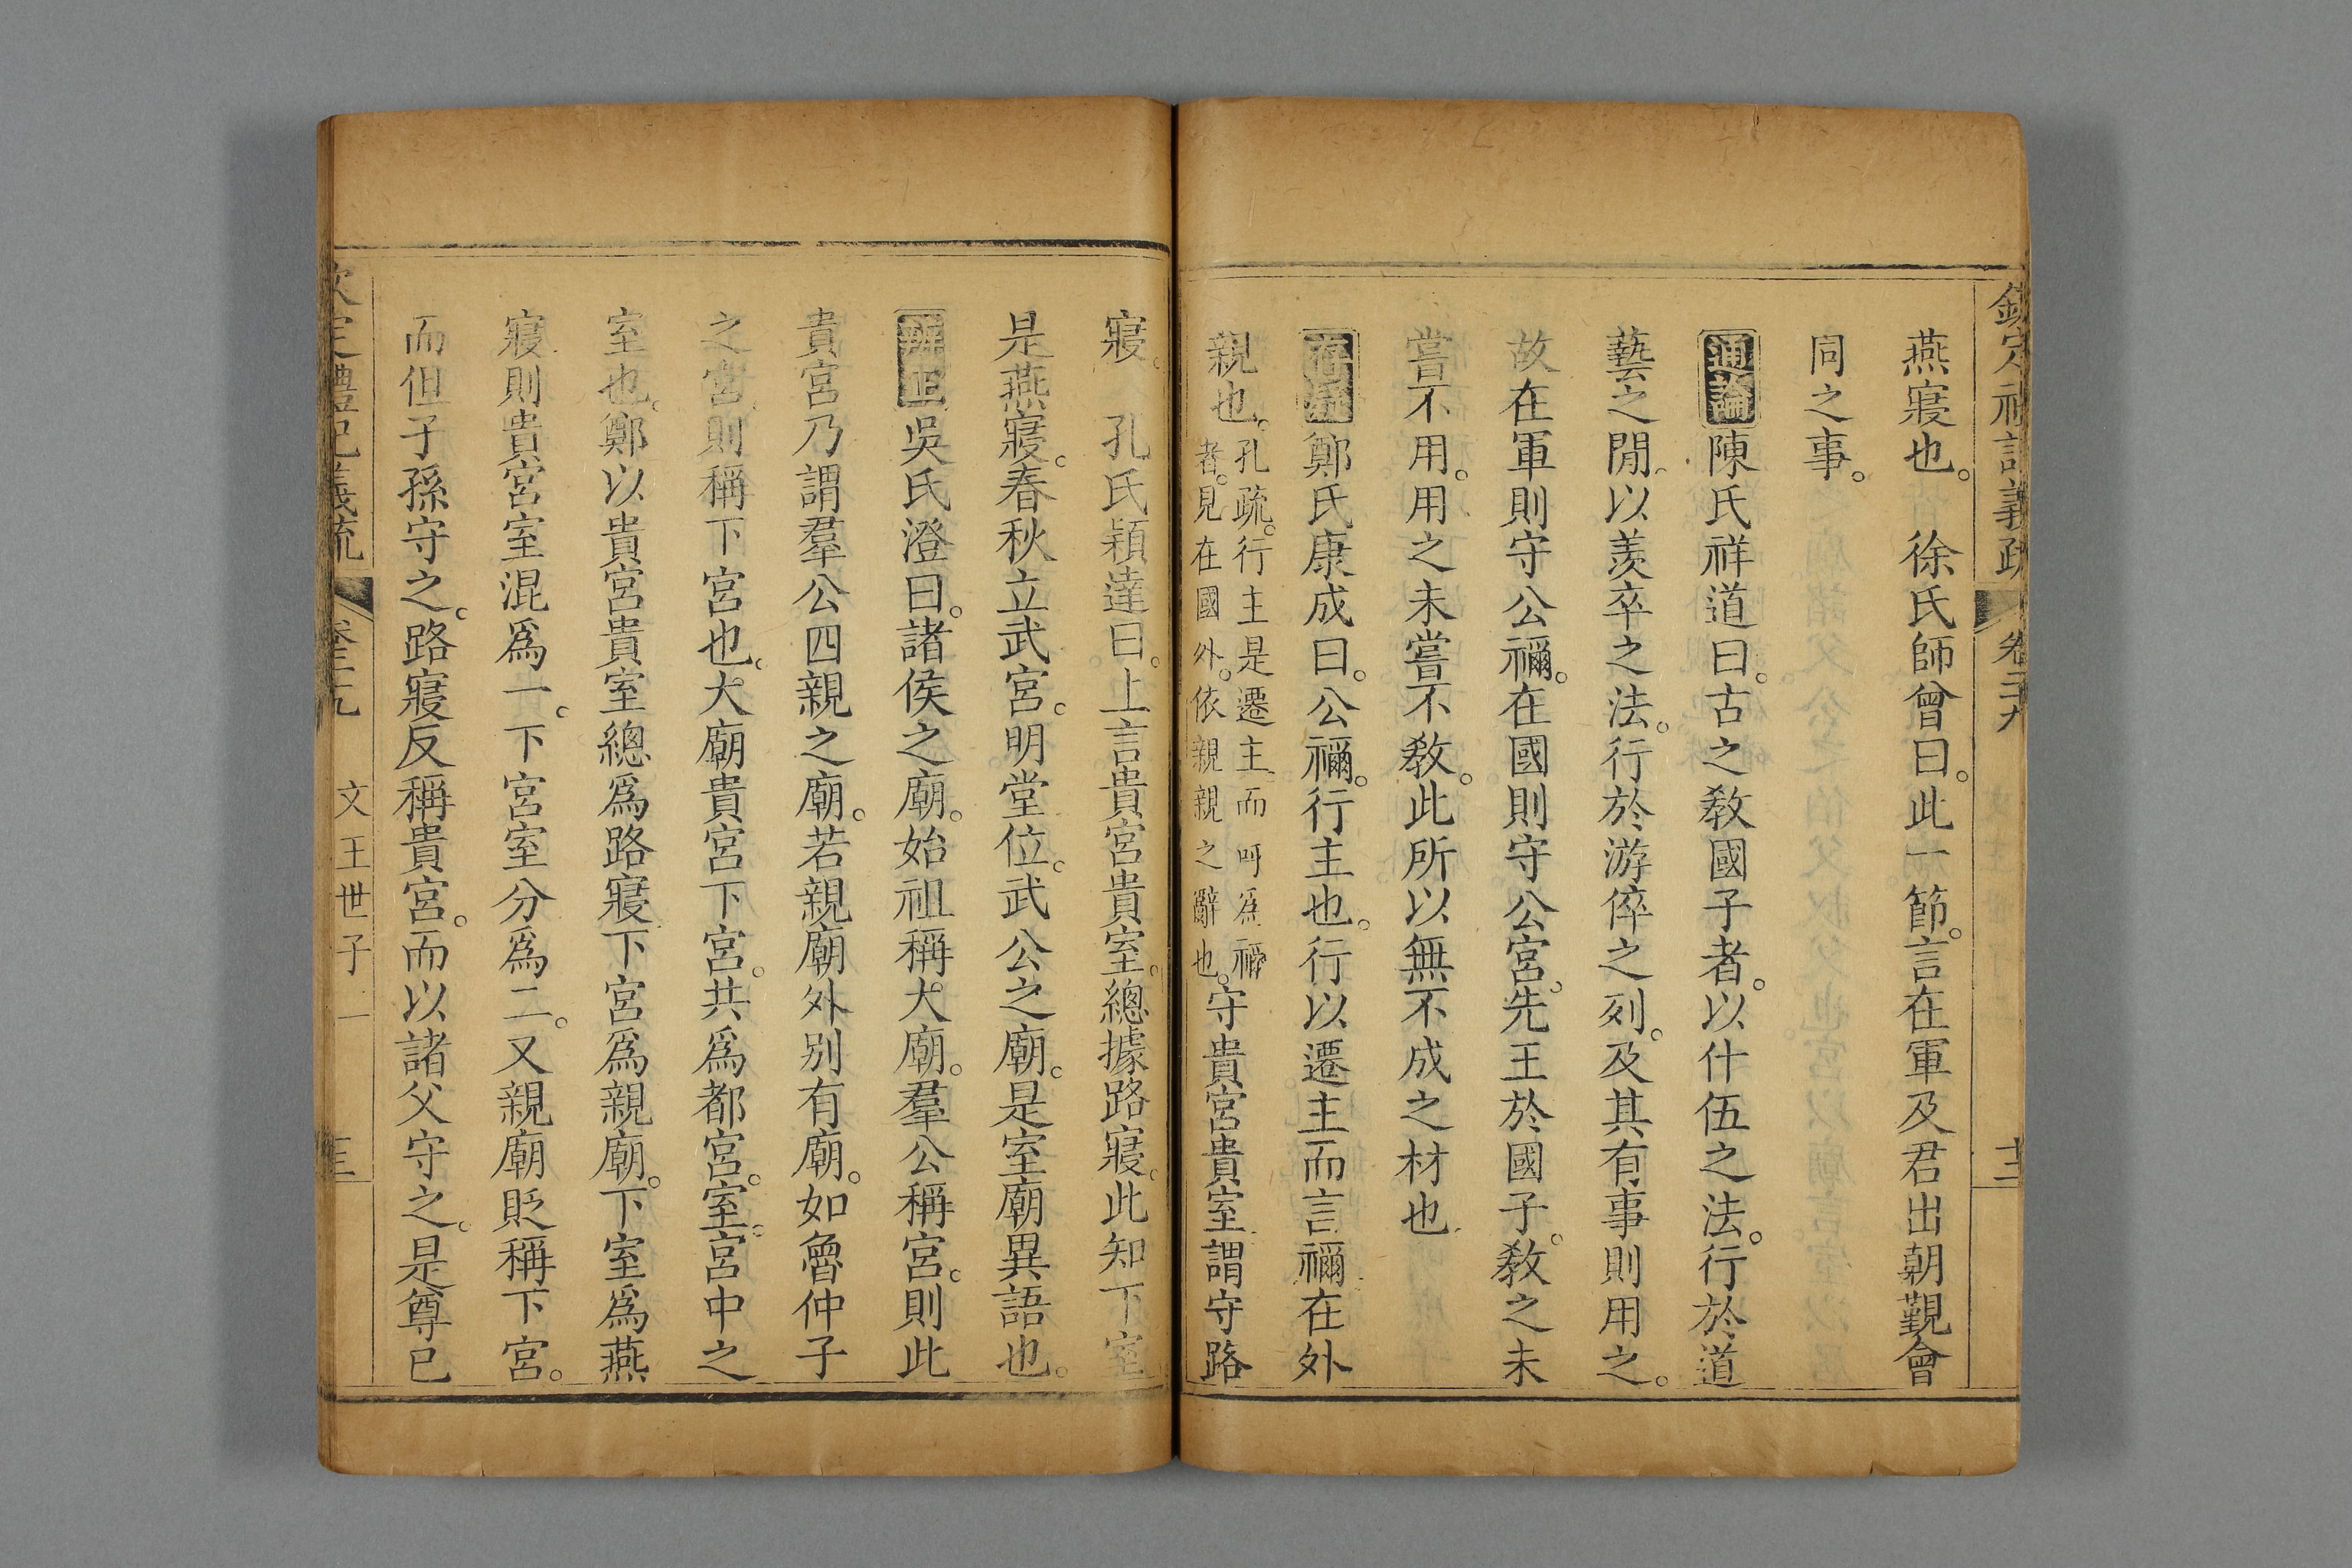 欽定禮記義疏 卷二十九 十三
燕寢也。　徐氏師曾曰。此一節。言在軍及君出朝覲會
同之事。
通論陳氏祥道曰。古之敎國子者。以什伍之法。行於道
藝之閒。以羨卒之法。行於游倅之列。及其有事則用之。
故在軍則守公禰。在國則守公宮。先王於國子。敎之未
嘗不用。用之未嘗不敎。此所以無不成之材也
存疑鄭氏康成曰。公禰。行主也。行以遷主而言禰在外
親也。孔疏。行主是遷主。而呼爲禰者。見在國外。依親親之辭也。守貴宮貴室。謂守路
寢。　孔氏穎達曰。上言貴宮貴室。總據路寢。此知下室
是燕寢。春秋立武宮。明堂位。武公之廟。是室廟異語也。
辨正吳氏澄曰。諸侯之廟。始祖稱大廟。羣公稱宮。則此
貴宮乃謂羣公四親之廟。若親廟外別有廟。如魯仲子
之宮。則稱下宮也。大廟貴宮下宮。共爲都宮。室。宮中之
室也。鄭以貴宮貴室總爲路寢下宮爲親廟。下室爲燕
寢則貴宮室混爲一。下宮室分爲二。又親廟貶稱下宮。
而但子孫守之。路寢反稱貴宮。而以諸父守之。是尊己
欽定禮記義疏 卷二十九 文王世子一 十三